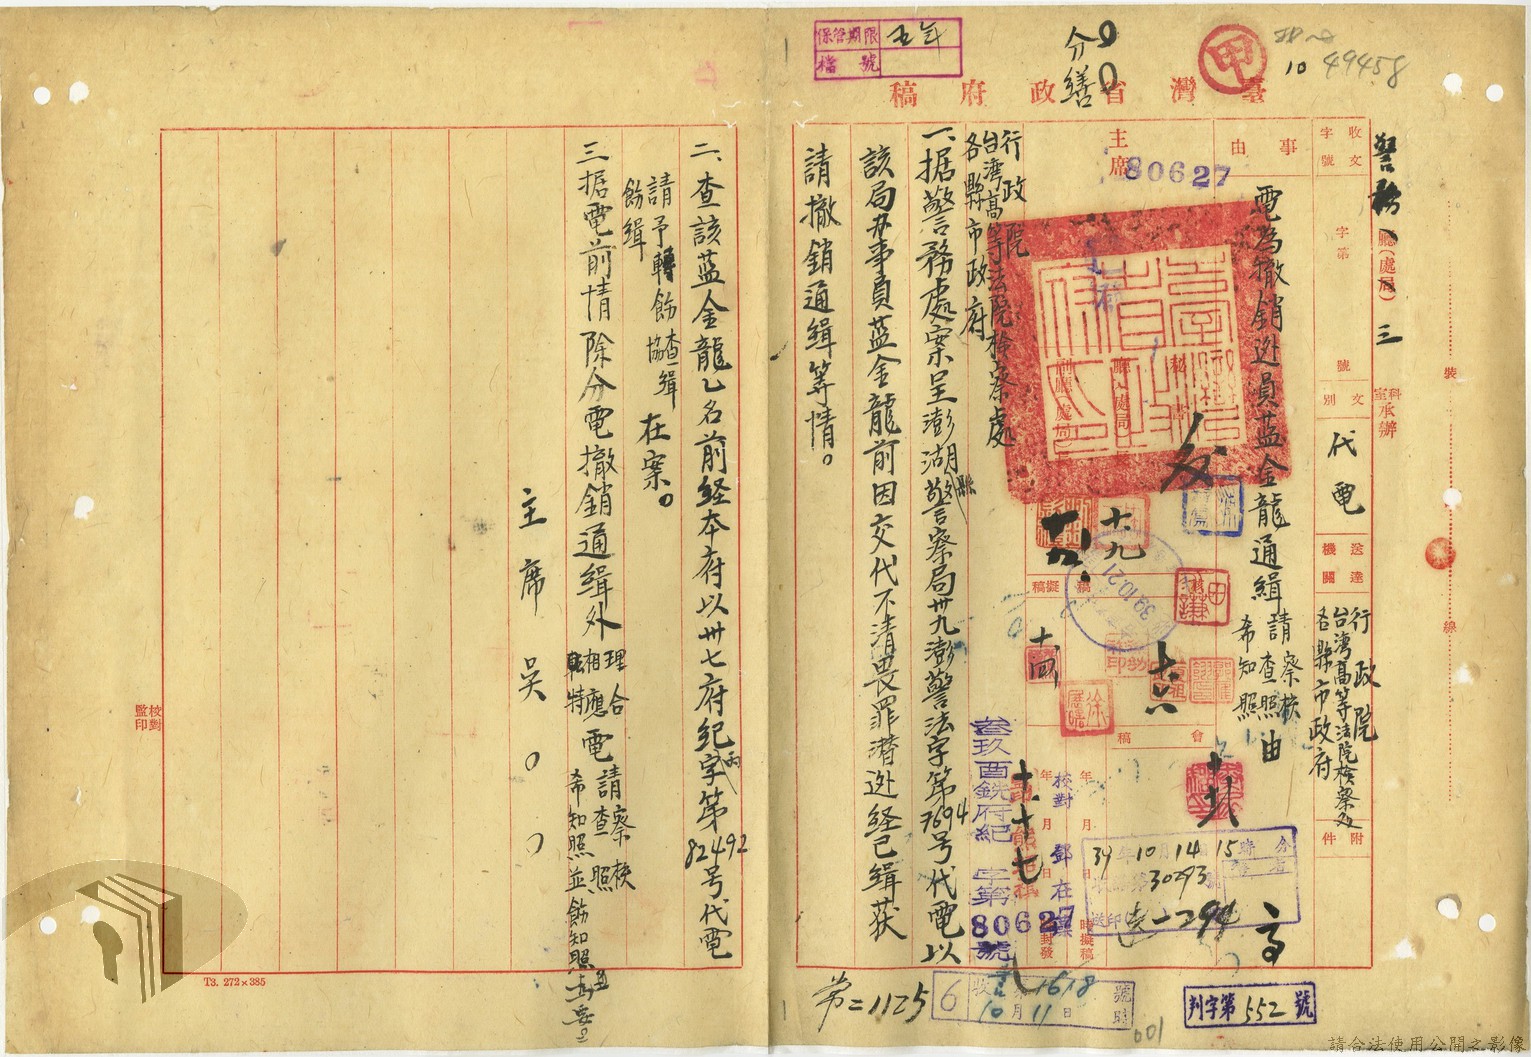 保管期限 五年
檔號
分繕
甲
10 49458
臺灣省政府稿
警務
廳(處局)
三
科室承辦
收文字號
字第
號
文別
代電
送達機關
行政院
台灣高等法院檢察處
各縣市政府
附件
事由
電為撤銷逃員藍金龍通緝
請察核
請查照
希知照
由
主席
80627
秘書
廳(處局)
副廳(處局)
擬稿
會稿
核稿
十九
十四
十六
十六
39.10.21
行政院
台灣高等法院檢察處
各縣市政府
一、据警務處案呈澎湖縣警察局卅九澎警法字第7694号代電以
該局办事員藍金龍前因交代不清畏罪潛逃経已緝获
請撤銷通緝等情。
二、查該藍金龍乙名前経本府以卅七府紀丙字第82492号代電
請予轉飭協查緝
飭緝
在案。
三、据電前情除分電撤銷通緝外
理合
相應
特
電
請察核
請查照
希知照並飭知照
主席吳○○
叁玖酉銑府紀 字第80627號
校對 鄧在
39年10月14日15時
30293
第=1125
6
收
1618號
10月11日
判字第552號
001
校對
監印
T3. 272×385
裝
線
請合法使用公開之影像